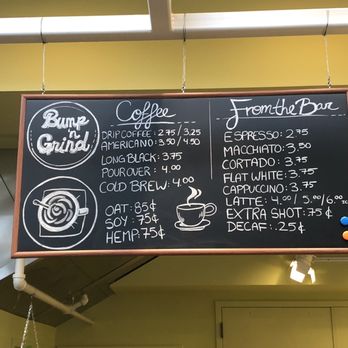 Bump
n
Grind
Coffee
DRIP COFFEE: 2.75/3.25
AMERICANO: 3.50/4.50
LONG BLACK: 3.75
POUR OVER: 4.00
COLD BREW: 4.00
OAT: 85¢
SOY: 75¢
HEMP: 75¢
From the Bar
ESPRESSO: 2.95
MACCHIATO: 3.50
CORTADO: 3.75
FLAT WHITE: 3.75
CAPPUCCINO: 3.75
LATTE: 4.00/5.00/6.00
EXTRA SHOT: 75¢
DECAF: .25¢